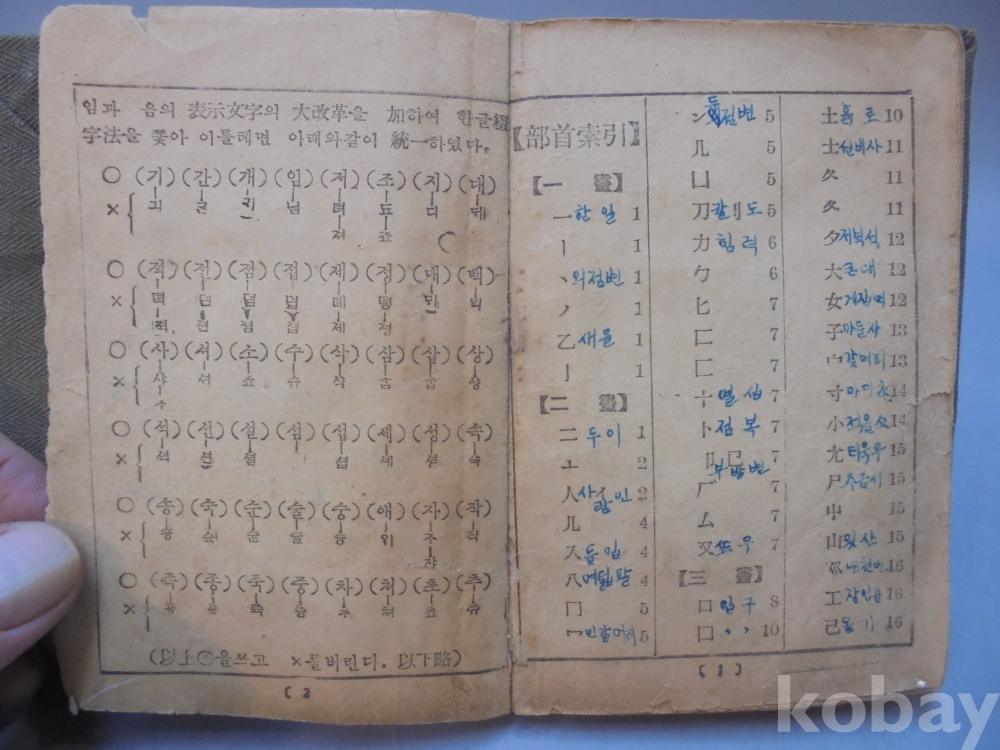 임과 음의 表示文字의 大改革을 加하여 한글綴
字法을 쫓아 이틀테면 아래와같이 統一하였다。
○ (기) (간) (개) (임) (저) (조) (지) (대)
×
○ (적) (전) (점) (접) (제) (정) (대) (백)
×
○ (사) (서) (소) (수) (삭) (삼) (삽) (상)
× 샤 셔 쇼 슈 샥 샴 샵 샹
○ (석) (선) (설) (섬) (섭) (세) (성) (속)
× 셕 션 셜 셤 셥 셰 셩 쇽
○ (송) (숙) (순) (술) (숭) (애) (자) (작)
×
○ (족) (종) (죽) (중) (차) (처) (초) (추)
×
(以上○을쓰고 ×틀버린다. 以下略)
( 2
【部首索引】
【一 畫】
一 한 일 1
丨 1
丶 외점변 1
丿 1
乙 새을 1
亅 1
【二 畫】
二 두이 1
亠 2
人 사람인 2
儿 4
入 들입 4
八 여덟팔 4
冂 5
冖 민갓머리 5
冫 점변 5
几 5
凵 5
刀 칼 刂 도 5
力 힘 력 6
勹 6
匕 7
匚 7
匸 7
十 열 십 7
卜 점 복 7
卩 㔾 7
厂 7
厶 7
又 또 우 7
【三 畫】
口 입 구 8
囗 〃 10
土 흙 로 10
士 선비사 11
夂 11
夊 11
夕 저녁석 12
大 큰대 12
女 게집녀 12
子 아들사 13
宀 갓머리 13
寸 마디촌 14
小 적을소 14
尢 15
尸 주금시 15
屮 15
山 뫼산 15
巛 16
工 장인공 16
己 몸기 16
( 1 )
kobay